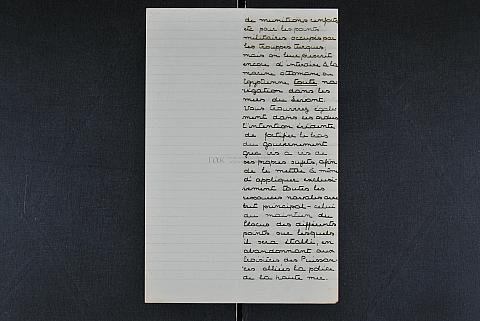 de munitions, renforts
etc pour les points
militaires occupés par
les trouppes turques;
mais on leur prescrit
encore d'interdire à la
marine ottomane ou
Egyptienne toute na-
vigation dans les
mers du Levant.
Vous trouverez égale-
ment dans ces ordres
l'intention évidente
de fortifier le bras
du gouvernement
grec vis à vis de
ses propres sujets, afin
de le mettre à même
d'appliquer exclusi-
vement toutes les
ressources navales au
but principal - celui
du maintien du
blocus des différents
points sur lesquels
il sera établi, en
abandonnant aux
croisières des Puissan-
ces alliées la police
de la haute mer.